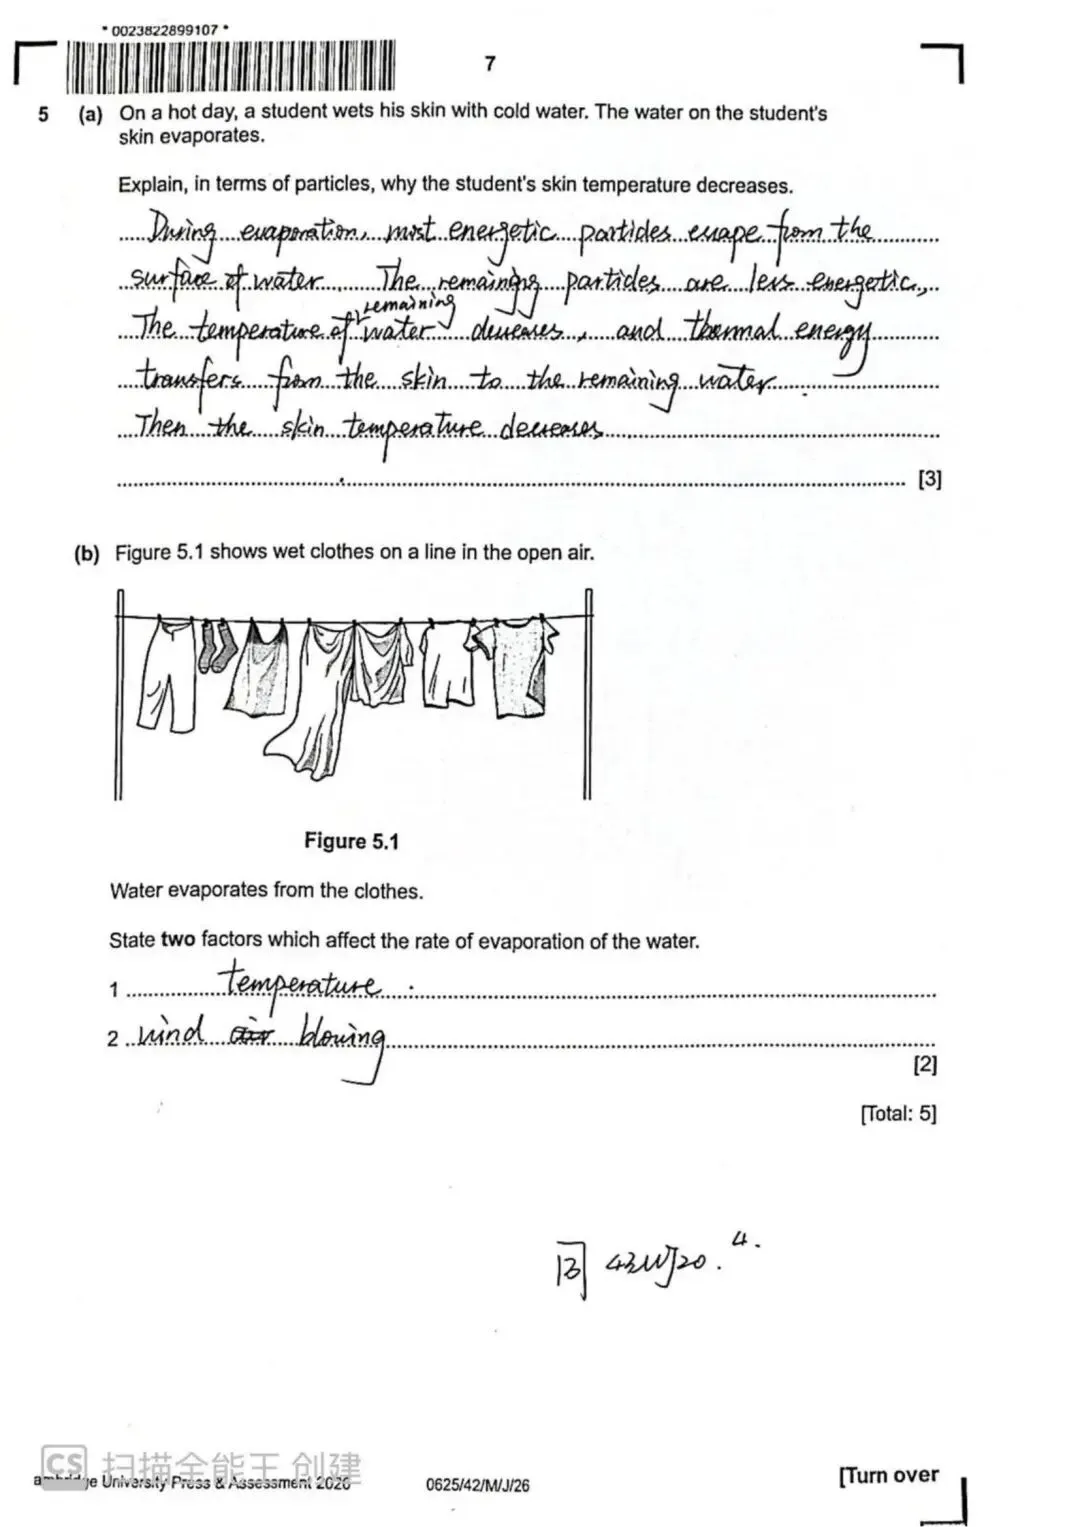 * 0023822899107 *
7
5 (a) On a hot day, a student wets his skin with cold water. The water on the student's
skin evaporates.
Explain, in terms of particles, why the student's skin temperature decreases.
During evaporation, most energetic particles escape from the
surface of water. The remaining particles are less energetic,
remaining
The temperature of water decreases, and thermal energy
transfers from the skin to the remaining water.
Then the skin temperature decreases
[3]
(b) Figure 5.1 shows wet clothes on a line in the open air.
Figure 5.1
Water evaporates from the clothes.
State two factors which affect the rate of evaporation of the water.
1 temperature.
2 wind air blowing
[2]
[Total: 5]
同 43MJ20. 4.
CS 扫描全能王 创建
ambridge University Press & Assessment 2026
0625/42/M/J/26
[Turn over